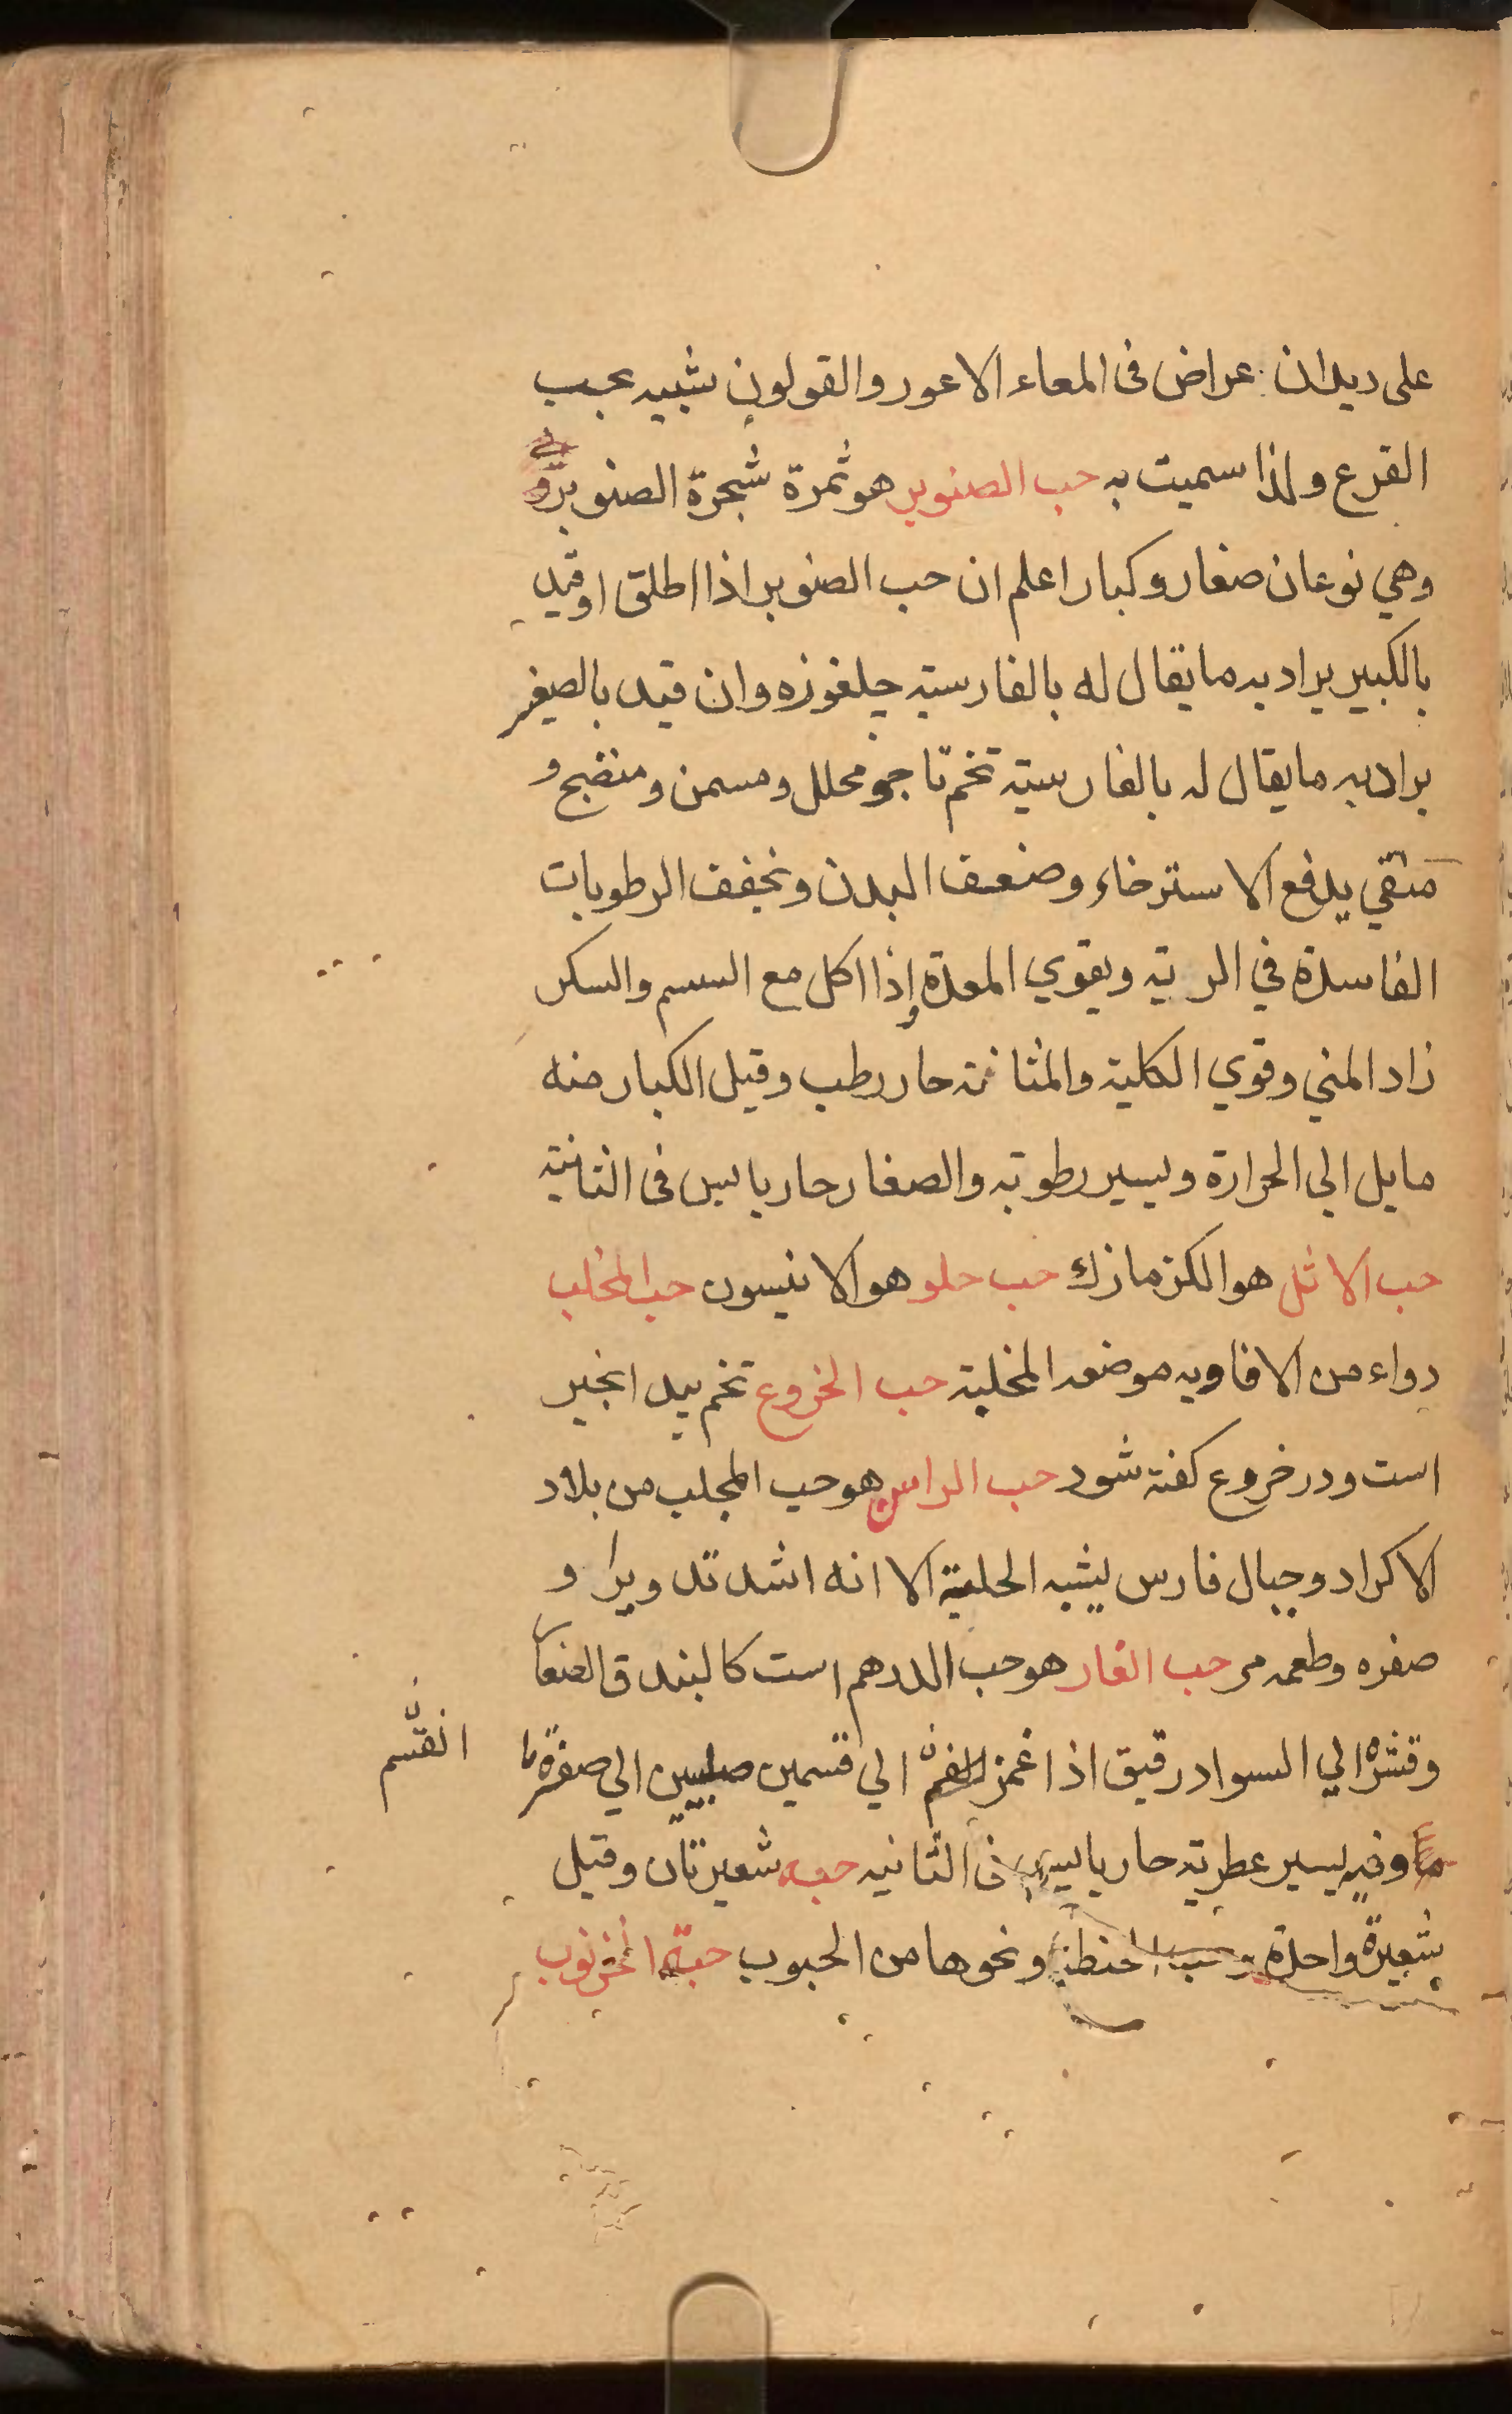 على ديدان عراض فى المعاء الاعور والقولون شبيه بحب
القرع ولذا سميت به حب الصنوبر هو ثمرة شجرة الصنوبر
وهي نوعان صغار وكبار اعلم ان حب الصنوبر اذا اطلق او قيد
بالكبير يراد به ما يقال له بالفارسية چلغوزه وان قيد بالصغير
يراد به ما يقال له بالفارسية تخم تاجو محلل ومسمن ومنضج و
منقي يدفع الاسترخاء وضعف البدن ونجفف الرطوبات
الفاسدة في الرية ويقوي المعدة وإذا اكل مع السمسم والسكر
زاد المني وقوي الكلية والمثانة حار رطب وقيل الكبار منه
مايل الى الحرارة ويسير رطوبة والصغار حار يابس فى الثانية
حب الاثل هو الكزمازك حب حلو هو الانيسون حب المخلب
دواء من الافاويه موضعه المخلبة حب الخروع تخم بيد انجير
است ودر خروع كفته شود حب الراس هو حب المجلب من بلاد
الاكراد وجبال فارس يشبه الحلبة الا انه اشد تدويرا و
صفره وطعمه مر حب الغار هو حب الدرهم است كالبندق الصغار
وقشره الي السواد رقيق اذا غمز الي قسمين صلبين الي صفرة
انقسم
ما وفيه يسير عطرية حار يابس فى الثانيه حبه شعيرتان وقيل
شعيرة واحدة وحبة الحنطة ونحوها من الحبوب حبة الخرنوب